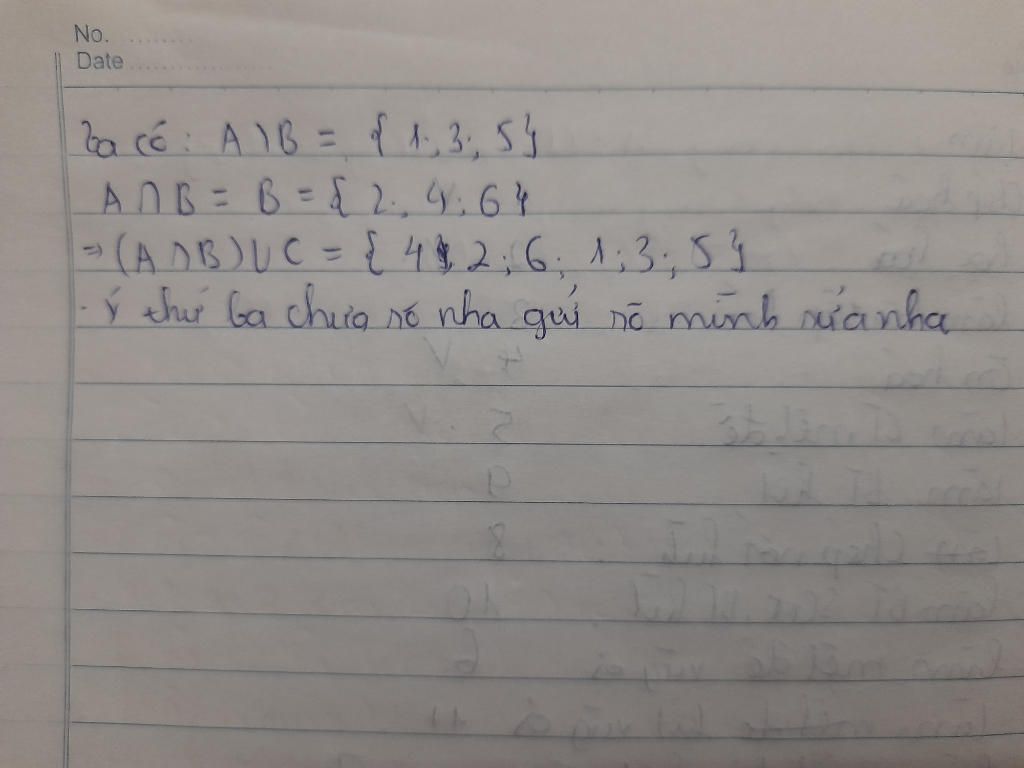 No. ..........
Date ....................
Ta có: A \ B = { 1; 3; 5}
A ∩ B = B = { 2; 4; 6}
=> (A ∩ B) ∪ C = { 4; 2; 6; 1; 3; 5}
. ý thứ ba chưa rõ nha gửi rõ mình sửa nha